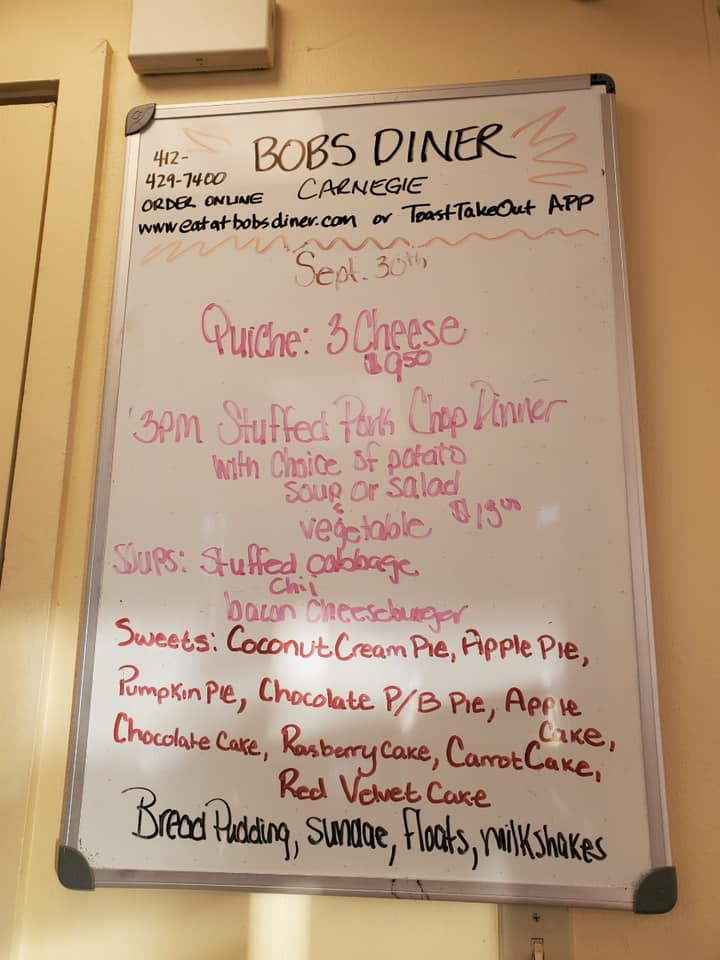 BOBS DINER
412-
429-7400
CARNEGIE
ORDER ONLINE
www.eatatbobsdiner.com or ToastTakeOut APP
Sept. 30th
Quiche: 3 Cheese
$9.50
3pm Stuffed Pork Chop Dinner
with Choice of potato
soup or salad
&
vegetable $13.00
Soups: Stuffed cabbage
Chili
bacon cheeseburger
Sweets: Coconut Cream Pie, Apple Pie,
Pumpkin Pie, Chocolate P/B Pie, Apple
Cake,
Chocolate Cake, Rasberry Cake, Carrot Cake,
Red Velvet Cake
Bread Pudding, sundae, floats, milkshakes